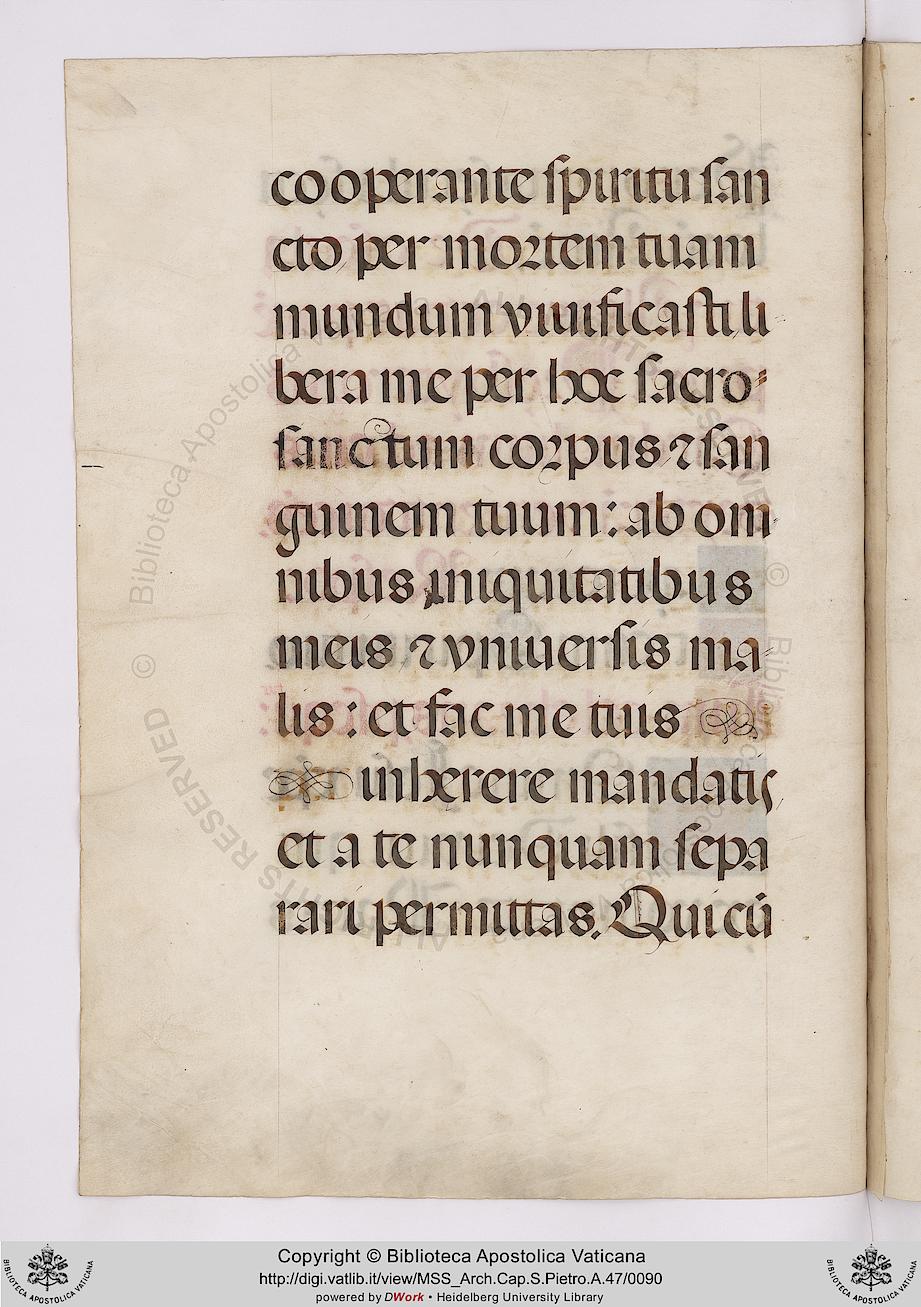 cooperante ſpiritu ſan
cto per moꝛtem tuam
mundum viuificaſti li⸗
bera me per hoc ſacro⸗
ſanctum coꝛpus ⁊ ſan
guinem tuum : ab om⸗
nibus iniquitatibus
meis ⁊ vniuerſis ma⸗
lis : et fac me tuis
inherere mandatis
et a te nunquam ſepa
rari permittas. Qui cū
© Biblioteca Apostolica Vaticana
ALL RIGHTS RESERVED
Copyright © Biblioteca Apostolica Vaticana
http://digi.vatlib.it/view/MSS_Arch.Cap.S.Pietro.A.47/0090
powered by DWork • Heidelberg University Library
BIBLIOTECA APOSTOLICA VATICANA
BIBLIOTECA APOSTOLICA VATICANA